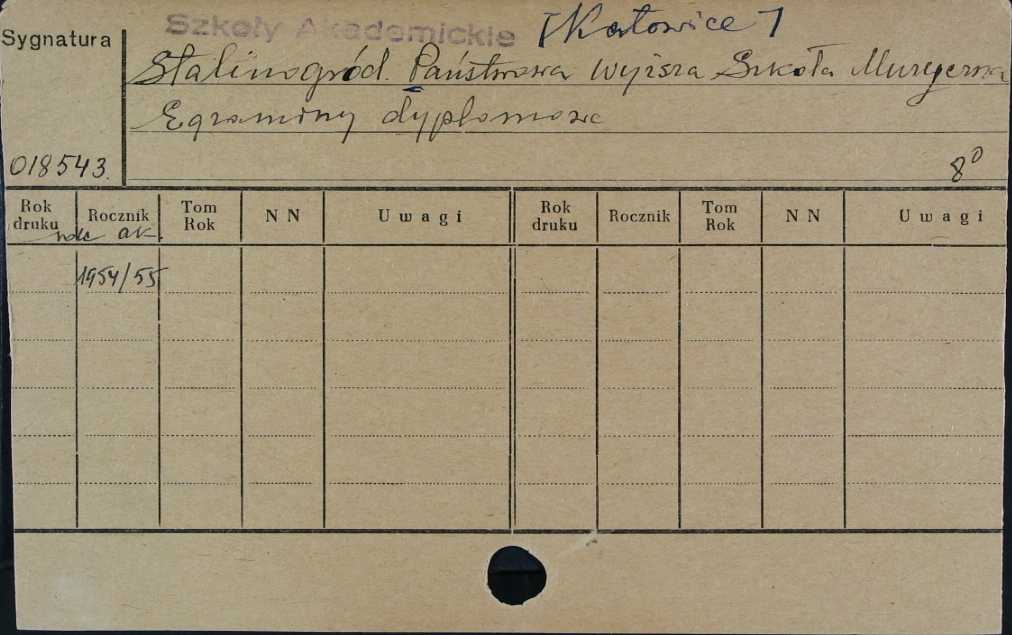 Szkoły Akademickie [Katowice]
Sygnatura
Stalinogród. Państwowa Wyższa Szkoła Muzyczna
Egzaminy dyplomowe
018543.
8⁰
Rok druku Rocznik Tom Rok N N Uwagi Rok druku Rocznik Tom Rok N N Uwagi
rok ak.
1954/55